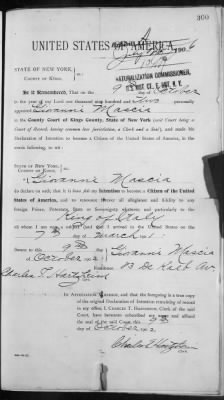 300
UNITED STATES OF A
STATE OF NEW YORK,
COUNTY OF KINGS,
NATURALIZATION COMMISSIONER,
Be it Remembered, That on the 9th day of October
in the year of our Lord one thousand nine hundred and two personally
appeared Giovanni Mascia in the
County Court of Kings County, State of New York (said Court being a
Court of Record, having common law jurisdiction, a Clerk and a Seal), and made his
Declaration of Intention to become a Citizen of the United States of America, in the
words following, to wit:
STATE OF NEW YORK,
COUNTY OF KINGS,
I, Giovanni Mascia
do declare on oath, that it is bona fide my Intention to become a Citizen of the United
States of America, and to renounce forever all allegiance and fidelity to any
foreign Prince, Potentate, State or Sovereignty whatever and particularly to the
King of Italy
of whom I am now a subject and that I arrived in the United States on the
day of March
Sworn to this 9th
day of October 1902
Giovanni Mascia
Residence
De Kalb Av.
Charles T. Hartzheim
IN ATTESTATION WHEREOF, and that the foregoing is a true copy
of the original Declaration of Intention remaining of record
in my office, I, CHARLES T. HARTZHEIM, Clerk of the
said Court, have hereunto subscribed my name and affixed
the seal of the said Court, this 9th
day of October 1902
Charles T. Hartzheim